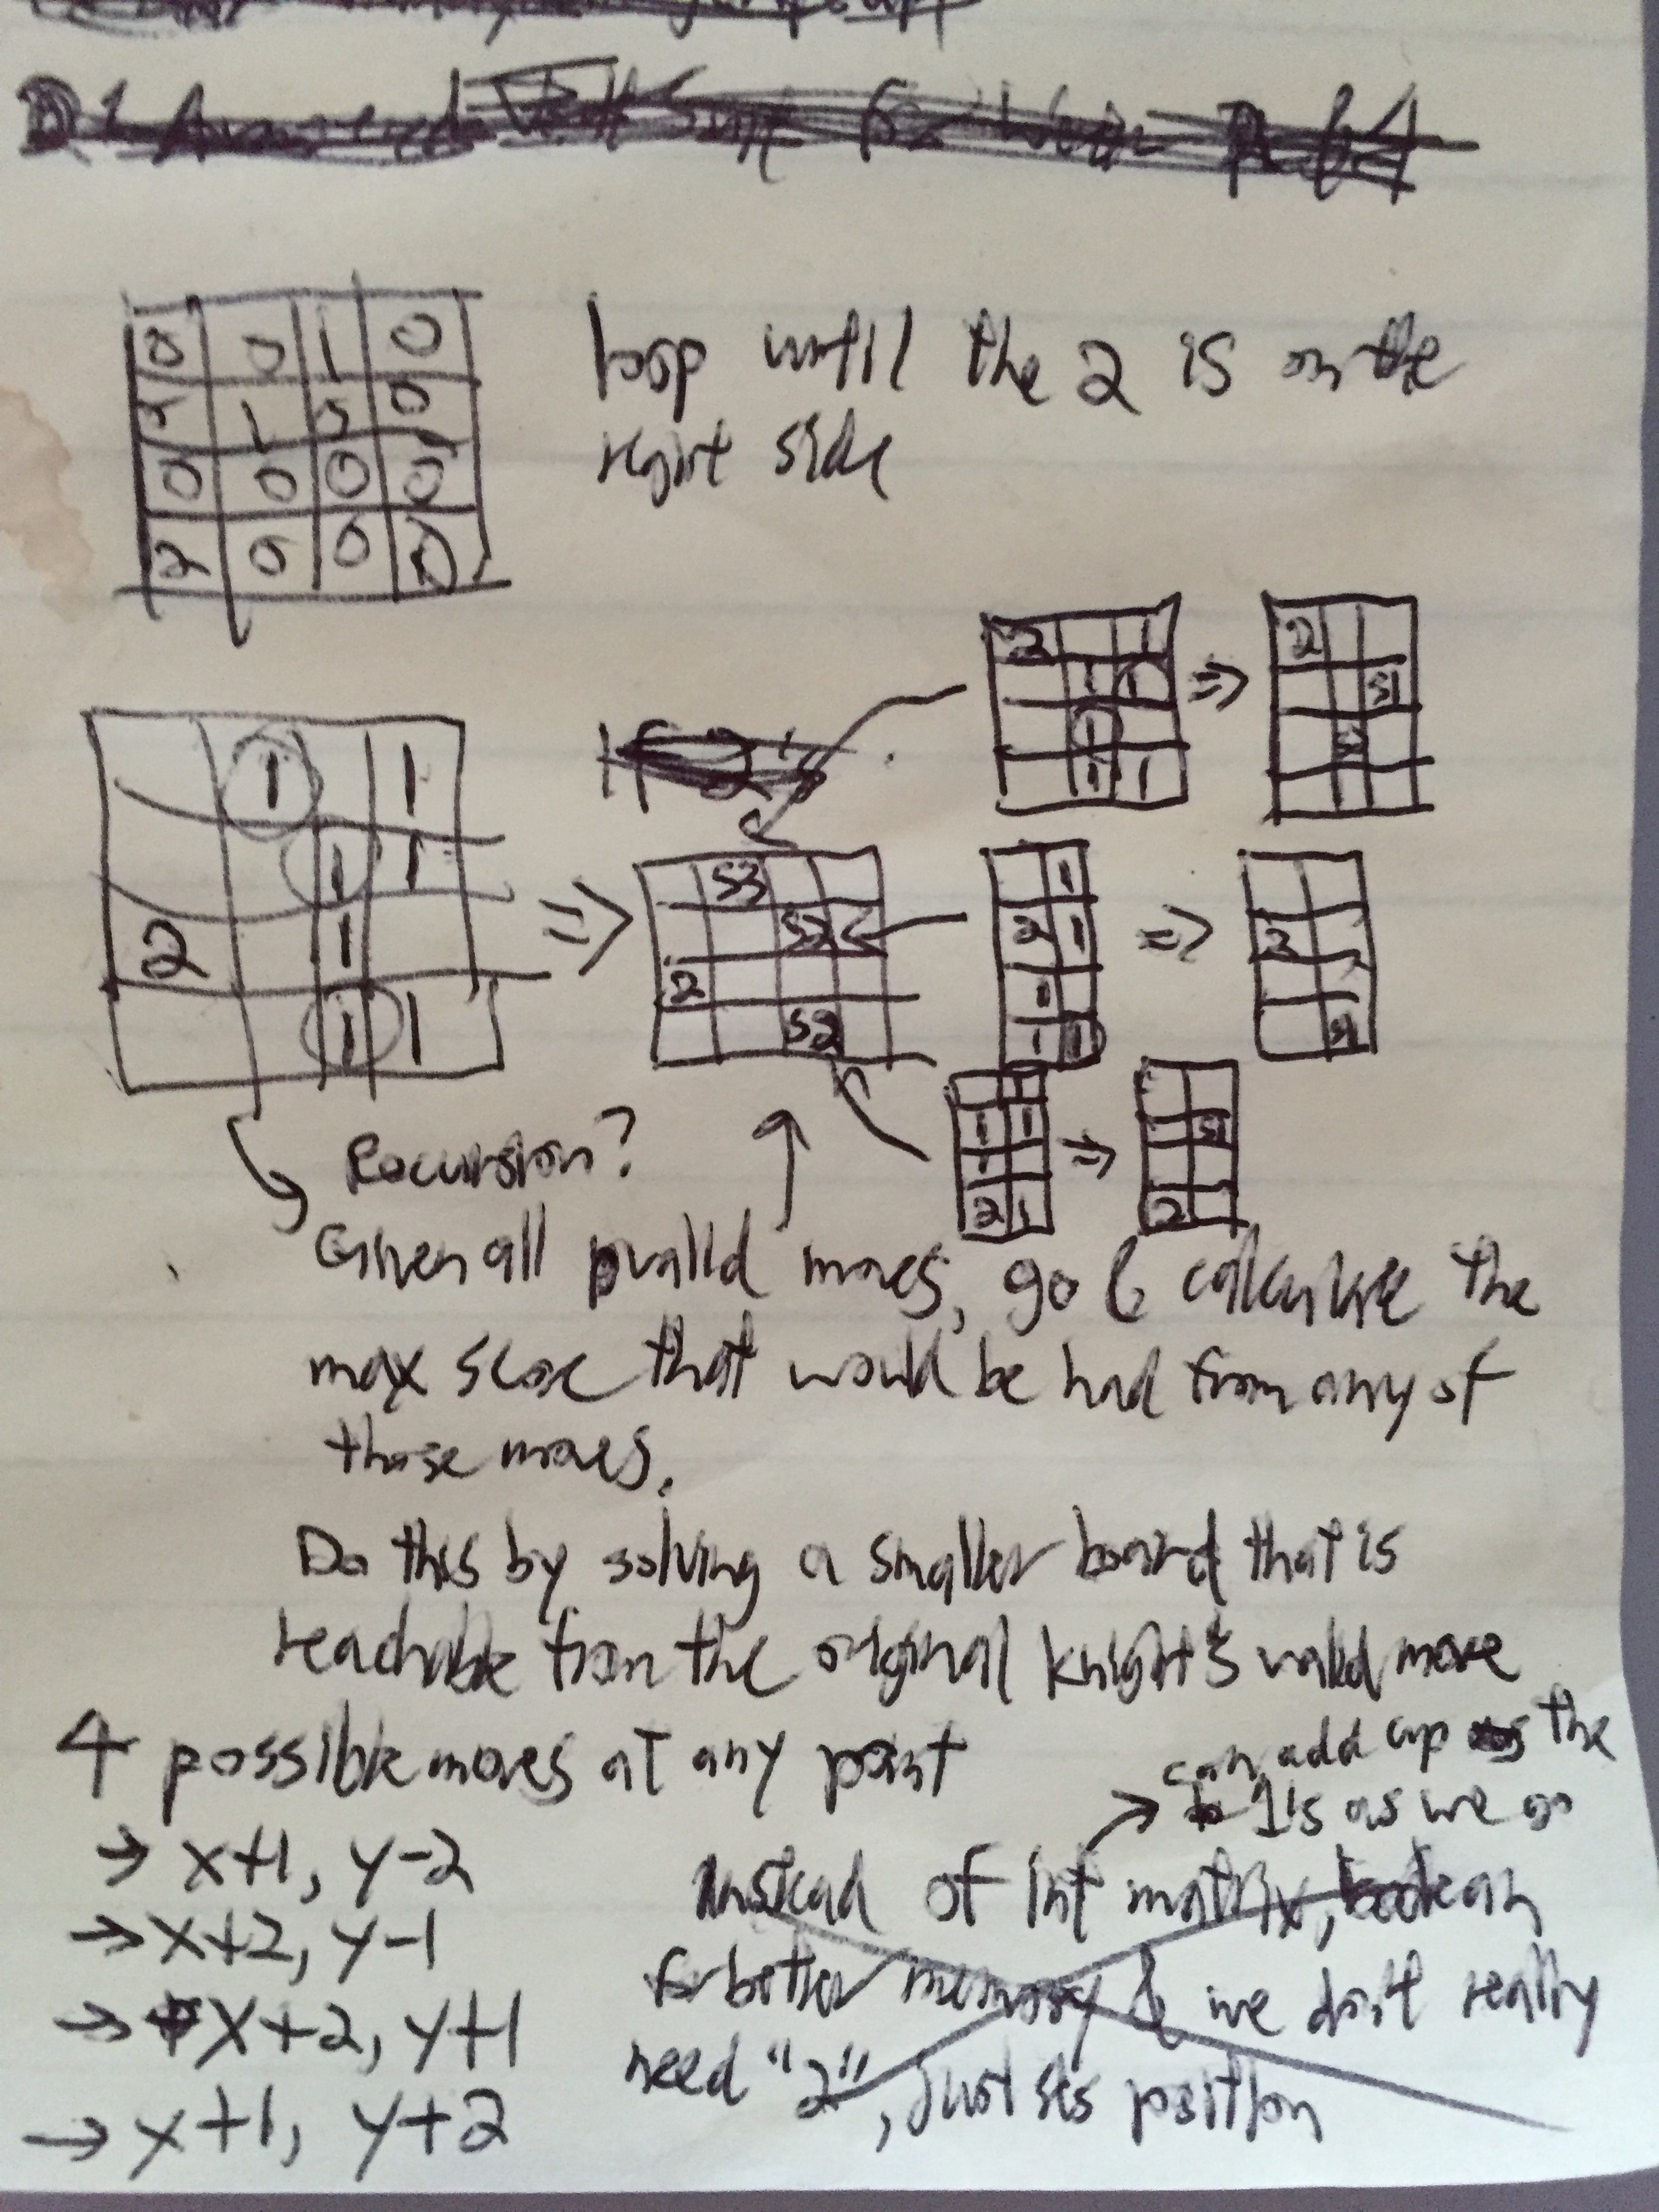 0 0 1 0
1 0
0 0 0 0
2 0 0
loop until the 2 is on the
right side
2 1
1 1
1
1 1
2
S1
S1
1 1
1 1
2 1
1 1
S3
S2
2
S2
1
2 1
1
1 1
2
S1
1
1 1
1
2 1
S1
2
Recursion?
Given all valid moves, go & calculate the
max score that would be had from any of
those moves.
Do this by solving a smaller board that is
reachable from the original knight's valid move
4 possible moves at any point
→ x+1, y-2
→ x+2, y-1
→ x+2, y+1
→ x+1, y+2
can add up the
1's as we go
Instead of int matrix, boolean
for better memory & we don't really
need "2", just its position